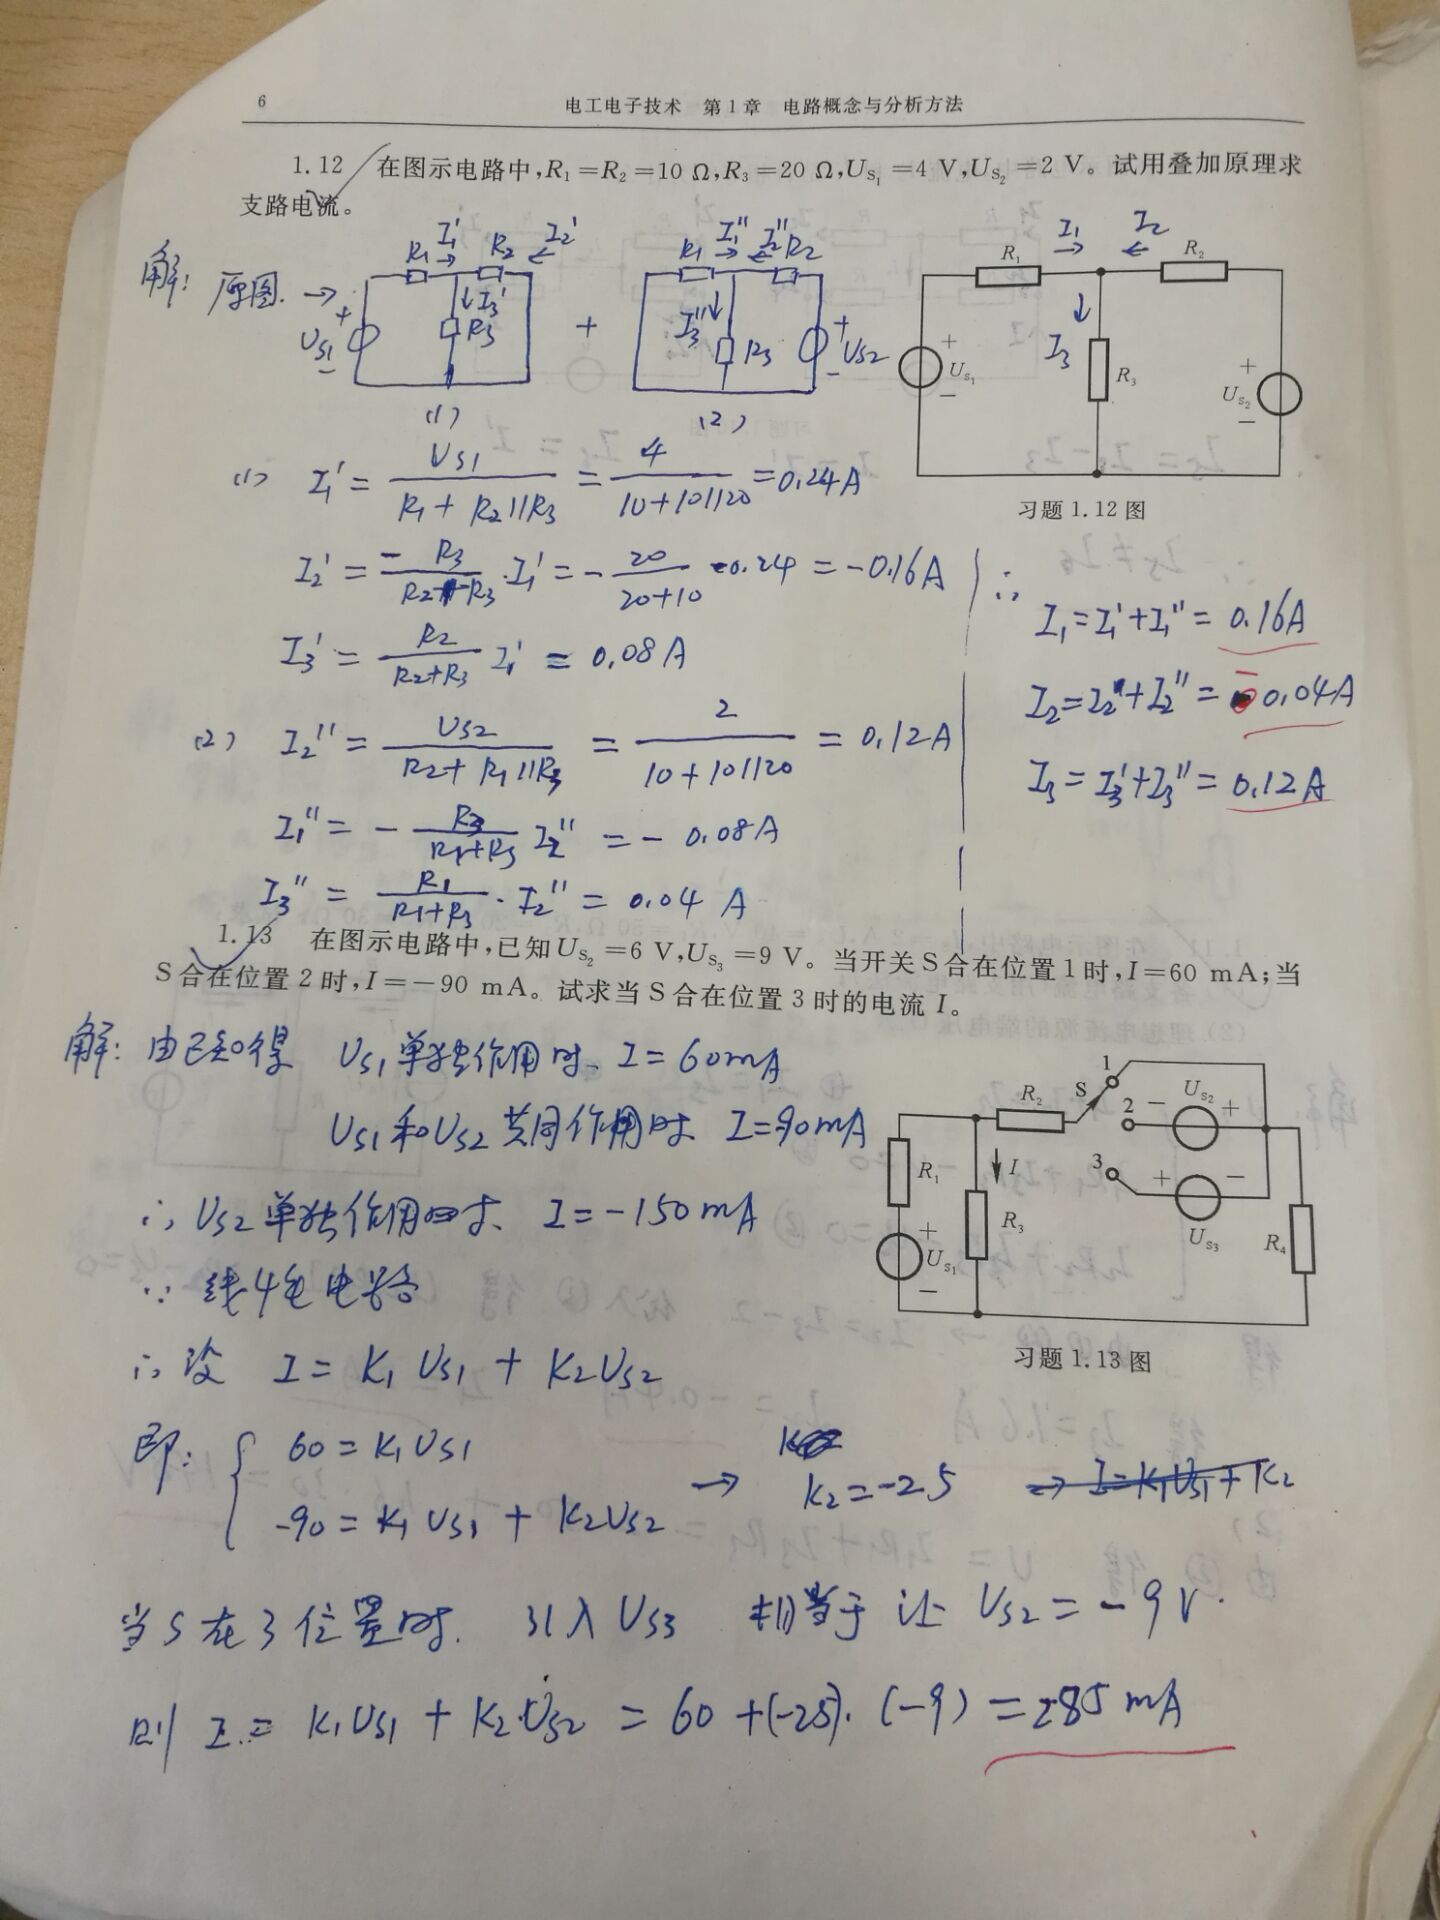 6
电工电子技术 第1章 电路概念与分析方法
1.12 在图示电路中,R₁=R₂=10 Ω,R₃=20 Ω,U_S₁=4 V,U_S₂=2 V。试用叠加原理求
支路电流。
解: 原图. →
R₁ I₁' R₂ I₂'
I₃' R₃
US1 + −
(1)
+
R₁ I₁'' I₂'' R₂
I₃'' R₃ + US2 −
(2)
I₁ I₂
R₁ R₂
I₃ R₃
+ U_S₁ −
+ U_S₂ −
习题1.12图
(1) I₁' = US1 / (R₁ + R₂∥R₃) = 4 / (10+10∥20) = 0.24A
I₂' = − R₃ / (R₂+R₃) · I₁' = − 20 / (20+10) · 0.24 = −0.16A
I₃' = R₂ / (R₂+R₃) I₁' = 0.08A
(2) I₂'' = US2 / (R₂+ R₁∥R₃) = 2 / (10+10∥20) = 0.12A
I₁'' = − R₃ / (R₁+R₃) I₂'' = − 0.08A
I₃'' = R₁ / (R₁+R₃) · I₂'' = 0.04 A
∴ I₁=I₁'+I₁''= 0.16A
I₂=I₂'+I₂''= −0.04A
I₃ = I₃'+I₃''= 0.12A
1.13 在图示电路中,已知U_S₂=6 V,U_S₃=9 V。当开关S合在位置1时,I=60 mA;当
S合在位置2时,I=−90 mA。试求当S合在位置3时的电流 I。
解: 由已知得 US1单独作用时、I=60mA
US1和US2共同作用时 I=90mA
∴ US2单独作用时、I=−150mA
∵ 线性电路
∴ 设 I = K₁US1 + K₂US2
即: { 60 = K₁US1
-90 = K₁US1 + K₂US2
→ K₂=−25
⇒ I=K₁US1+K₂
1 S R₂ 2 − U_S₂ +
3 + U_S₃ −
R₁ I R₃ R₄
+ U_S₁ −
习题1.13图
当S在3位置时. 引入US3 相当于让 US2=−9V.
则 I = K₁US1 + K₂·US2 = 60 +(−25)·(−9) = 285mA